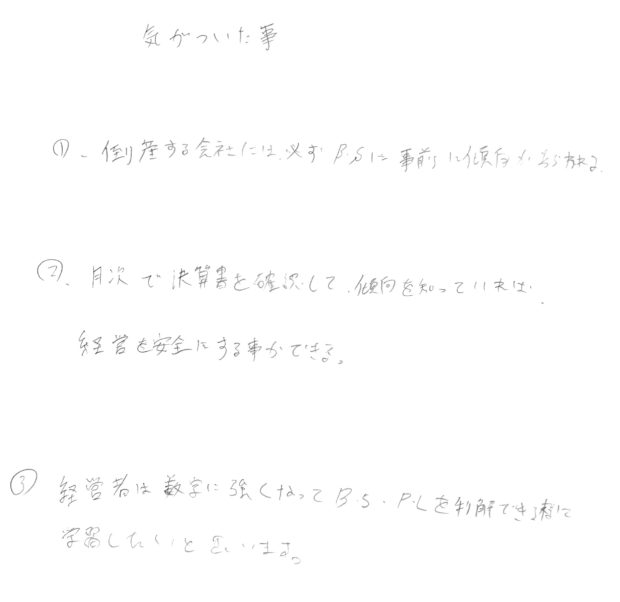 気がついた事
①、倒産する会社には必ずB.Sに事前に傾向があらわれる.
②、月次で決算書を確認して、傾向を知っていれば.
経営を安全にする事ができる。
③ 経営者は数字に強くなってB.S.P.Lを判解できる様に
学習したいと思います。